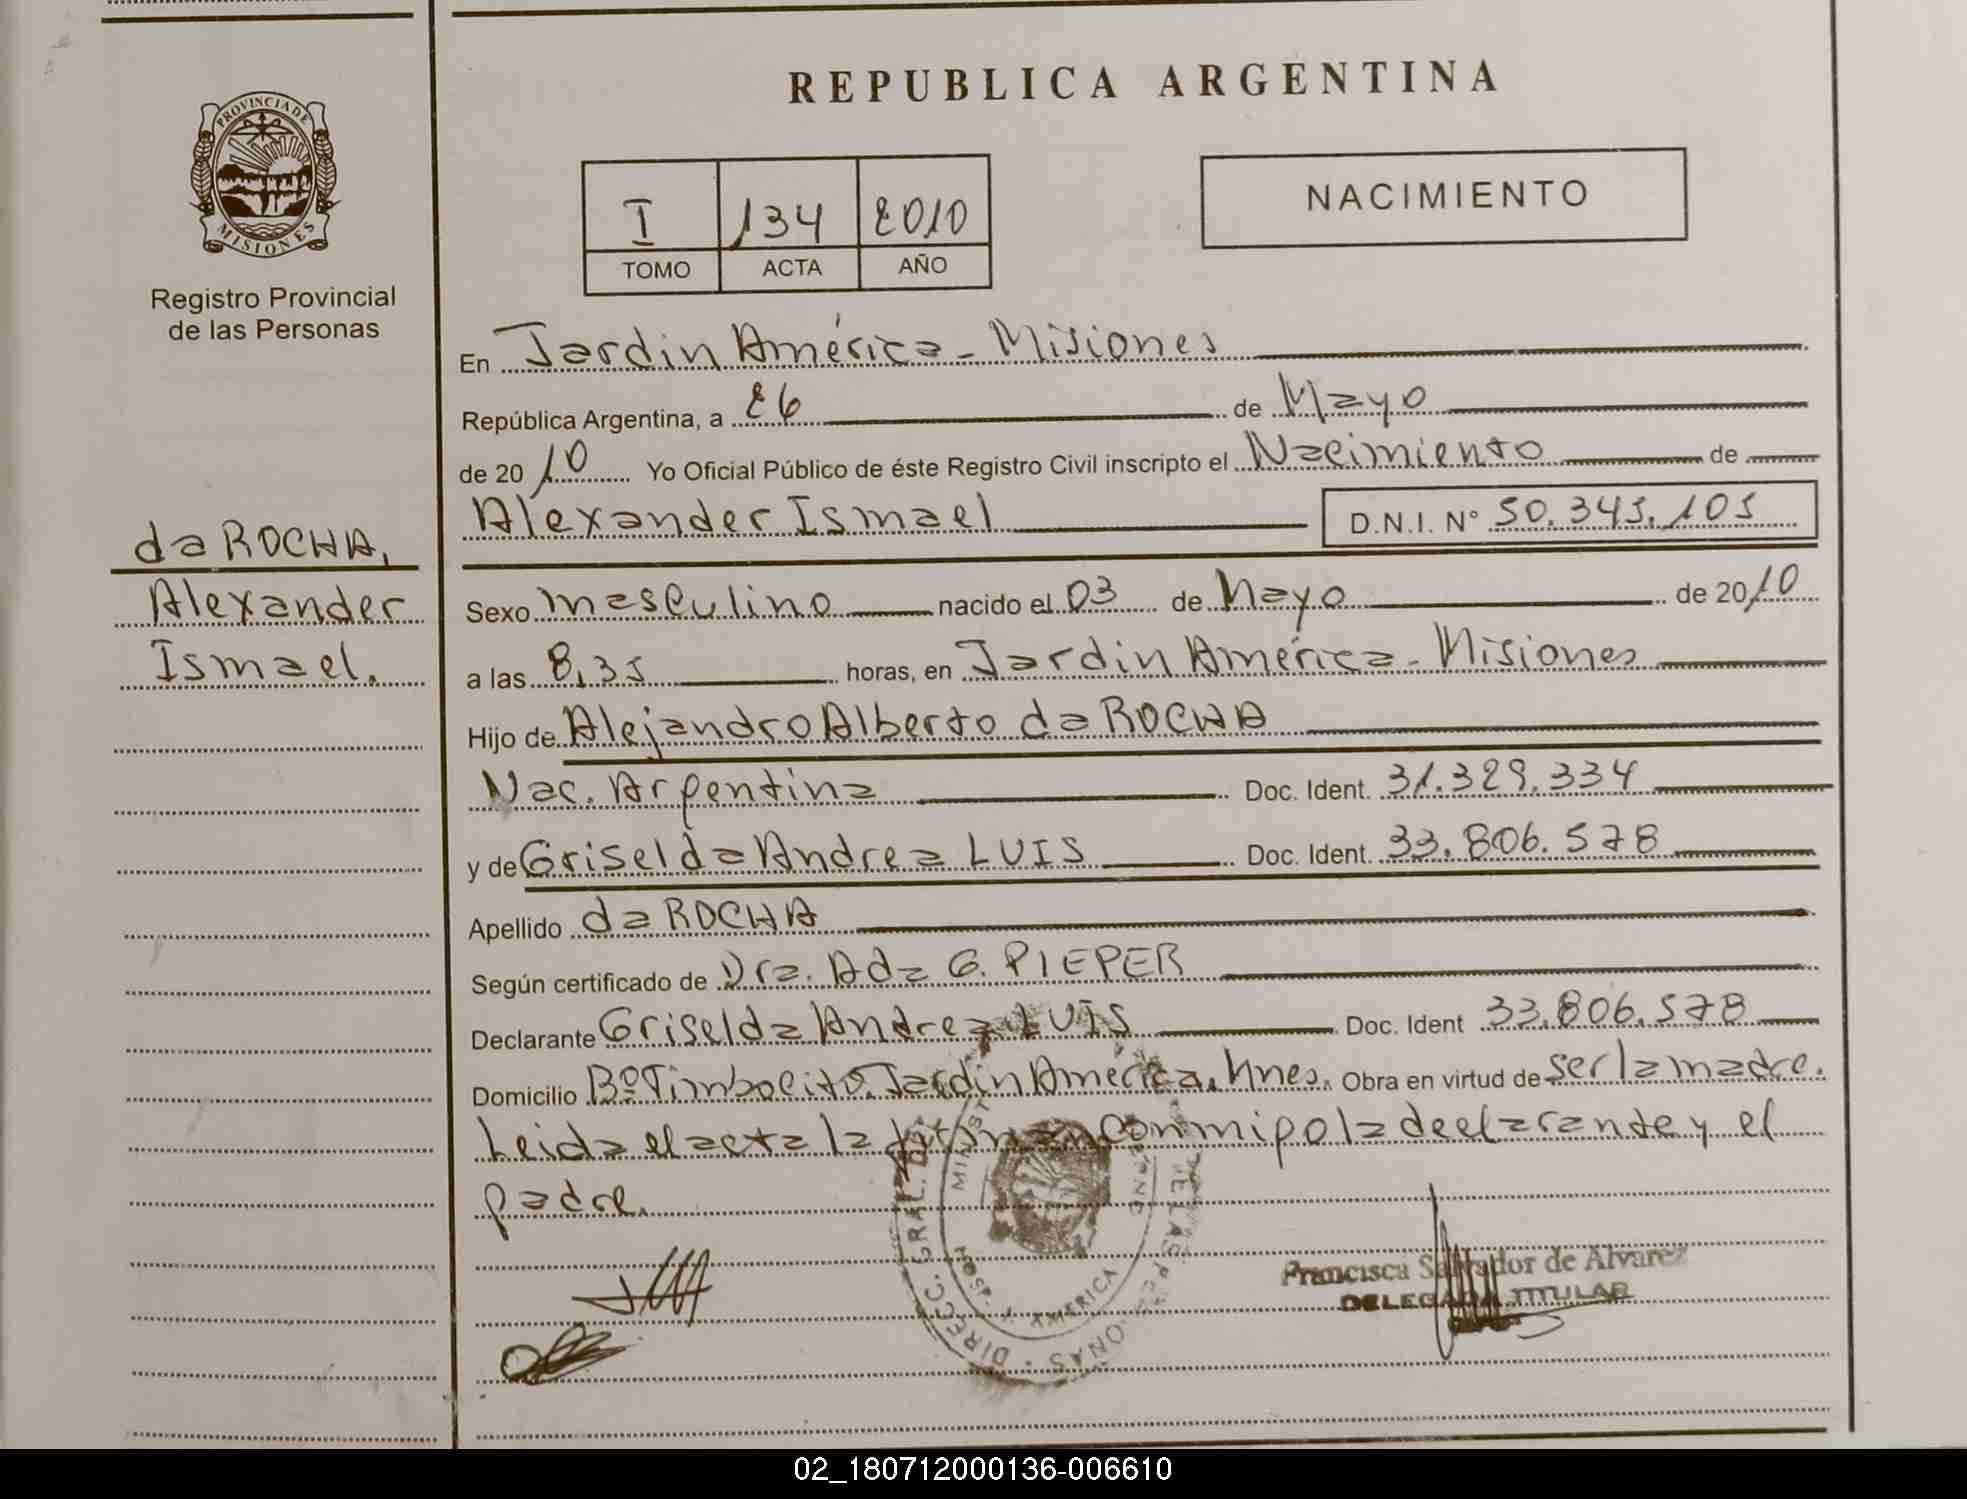 REPUBLICA ARGENTINA
PROVINCIA DE
MISIONES
Registro Provincial
de las Personas
I 134 2010
TOMO ACTA AÑO
NACIMIENTO
En Jardin América - Misiones
República Argentina, a 26 de Mayo
de 2010 Yo Oficial Público de éste Registro Civil inscripto el Nacimiento de
Alexander Ismael D.N.I. N° 50.343.105
da ROCHA,
Alexander
Ismael.
Sexo masculino nacido el 03 de Mayo de 2010
a las 8,35 horas, en Jardin América - Misiones
Hijo de Alejandro Alberto da ROCHA
Nac. Argentina Doc. Ident. 31.329.334
y de Griselda Andrea LUIS Doc. Ident. 33.806.578
Apellido da ROCHA
Según certificado de Dra. Ada G. PIEPER
Declarante Griselda Andrea LUIS Doc. Ident 33.806.578
Domicilio Bº Timbocito, Jardin América, Mnes. Obra en virtud de ser la madre.
Leida el acta la firman conmipo la declarante y el
padre.
DIRECC. GRAL. DE LAS PERSONAS
AMERICA
Francisca Salvador de Alvarez
DELEGADA TITULAR
02_180712000136-006610